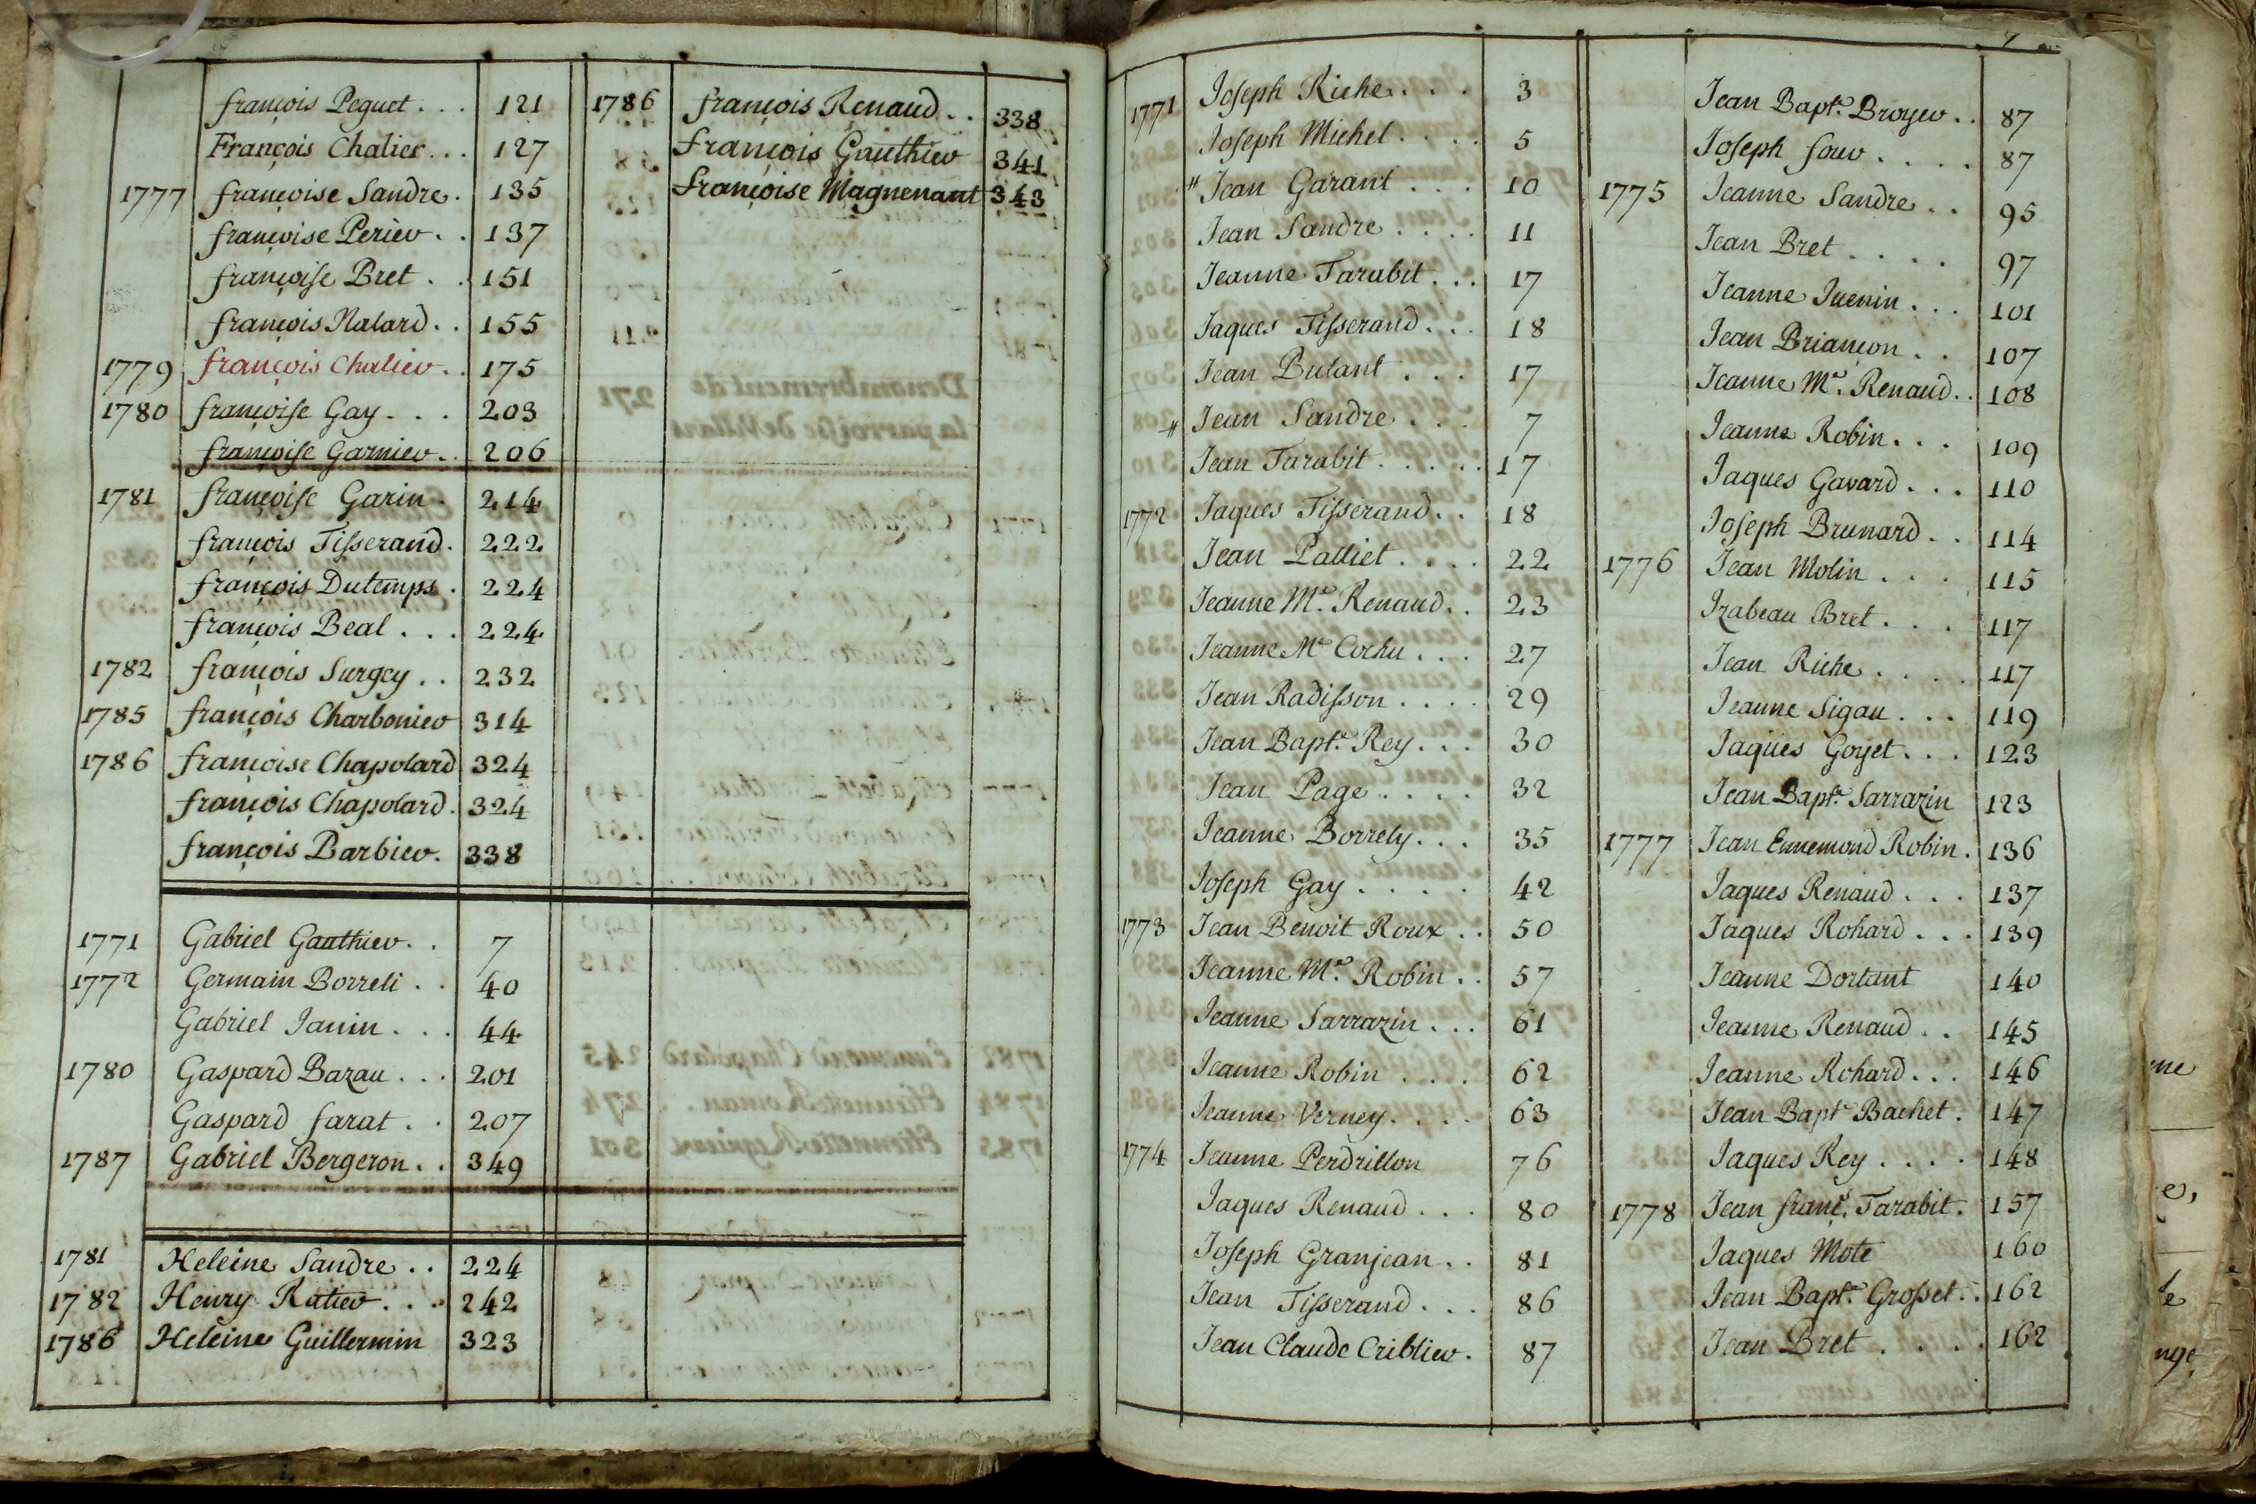 françois Peguet . . . 121
François Chalier . . . 127
1777 françoise Sandre . 135
françoise Perier . . 137
françoise Bret . . 151
françois Nalard . . 155
1779 françois Chalier . . 175
1780 françoise Gay . . . 203
françoise Garnier . . 206
1781 françoise Garin . 214
françois Tisserand . 222
françois Dutemps . 224
françois Beal . . . 224
1782 françois Surgey . . 232
1785 françois Charbonier 314
1786 françoise Chapolard 324
françois Chapolard . 324
françois Barbier . 338
1771 Gabriel Gauthier . . 7
1772 Germain Borreli . . 40
Gabriel Janin . . . 44
1780 Gaspard Bazau . . . 201
Gaspard farat . . 207
1787 Gabriel Bergeron . . 349
1781 Heleine Sandre . . 224
1782 Henry Ratier . . . 242
1786 Heleine Guillermin 323
1786 françois Renaud . . 338
françois Gauthier 341
françoise Magnenant 343
7
1771 Joseph Riche . . . 3
Joseph Michel . . . . 5
" Jean Garant . . . 10
Jean Sandre . . . . 11
Jeanne Tarabit . . . 17
Jaques Tisserand . . . 18
Jean Butant . . . 17
" Jean Sandre . . . 7
Jean Tarabit . . . . . 17
1772 Jaques Tisserand . . 18
Jean Palliet . . . . 22
Jeanne Me. Renaud . . 23
Jeanne Me Cochu . . . 27
Jean Radisson . . . . 29
Jean Bapte. Rey . . . 30
Jean Page . . . . 32
Jeanne Borrely . . . 35
Joseph Gay . . . . . 42
1773 Jean Benoit Roux . . 50
Jeanne Me. Robin . . 57
Jeanne Sarrazin . . . 61
Jeanne Robin . . . . 62
Jeanne Verney . . . . 63
1774 Jeanne Perdrillon 76
Jaques Renaud . . . 80
Joseph Granjean . . 81
Jean Tisserand . . . 86
Jean Claude Criblier . 87
Jean Bapte. Broyer . . 87
Joseph four . . . . 87
1775 Jeanne Sandre . . 95
Jean Bret . . . . 97
Jeanne Juenin . . . 101
Jean Briançon . . 107
Jeanne Me. Renaud . . 108
Jeanne Robin . . . 109
Jaques Gavard . . . 110
Joseph Brunard . . 114
1776 Jean Molin . . . 115
Izabeau Bret . . . . 117
Jean Riche . . . . 117
Jeanne Sigau . . . 119
Jaques Goyet . . . 123
Jean Bapte. Sarrazin 123
1777 Jean Ennemond Robin . 136
Jaques Renaud . . . 137
Jaques Rohard . . . 139
Jeanne Dortant 140
Jeanne Renaud . . 145
Jeanne Rohard . . . 146
Jean Bapte Bachet . 147
Jaques Rey . . . . 148
1778 Jean franç. Tarabit . 157
Jaques Mote 160
Jean Bapte. Grosset . . 162
Jean Bret . . . . 162